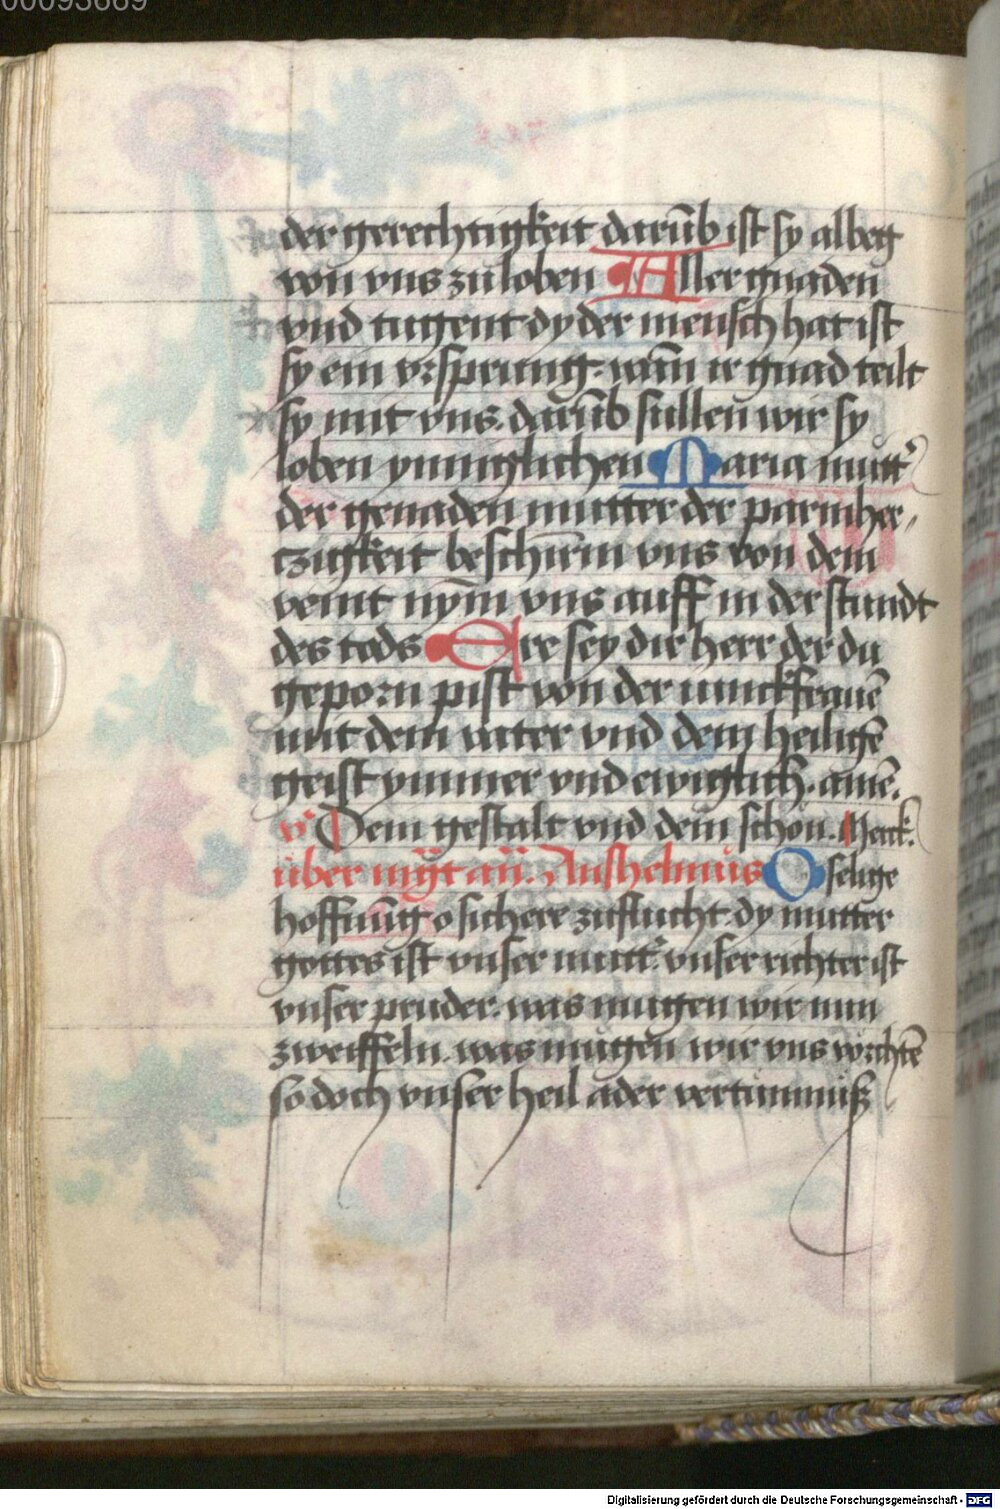 00093669
der gerechtigkeit darūb ist sy albeg
von vns zu loben Aller gnaden
vnd tugent dy der mensch hat ist
sy ein vrsprung. wañ ir gnad teilt
sy mit vns. darūb sullen wir sy
loben ynniglichen Maria mutt᷑
der genaden mutter der parmher-
tzigkeit beschirm vns von dem
veint nȳm vns auff in der stundt
des tods Ere sey dir herr der du
geporn pist von der iunckfrauē
mit dem vater vnd dem heiligē
geist ymmer vnd ewiglich. amē.
v᷑ Dein gestalt vnd dein schōn. Merck.
über Anshelmus O selige
hoffnūg o sichere zuflucht. dy mutter
gottes ist vnser mutt᷑. vnser richter ist
vnser pruder. was mugen wir nun
zweiffeln. was mugen wir vns vorchtē
so doch vnser heil ader vertumnuß
Digitalisierung gefördert durch die Deutsche Forschungsgemeinschaft - DFG